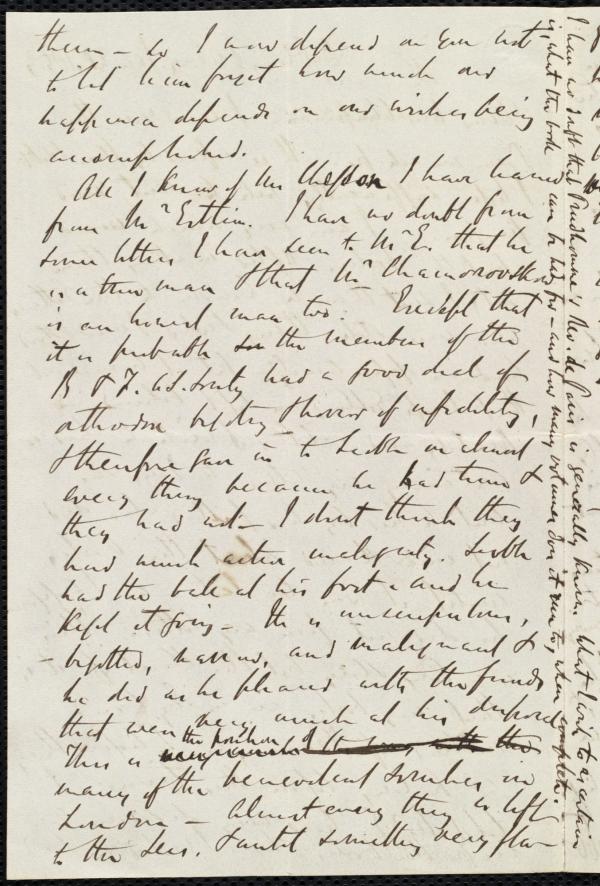 them — so I now depend on you not
to let him forget how much our
happiness depends on our wishes being
accomplished.
All I know of Mr Chesson I have learned
from Mr Estlin. I have no doubt from
some letters I have seen to Mr E. that he
is a true man & that Mr Chamerovzow
is an honest man too. Except that
it is probable the members of the
B & F. A.S. Society had a good deal of
orthodox bigotry & horror of infidelity,
& therefore gave in to Scoble in almost
every thing because he had time &
they had not — I dont think they
had much active malignity. Scoble
had the ball at his foot & and he
kept it going — He is unscrupulous,
— bigotted, narrow, and malignant &
he did as he pleased with the funds
that were very much at his disposal
This is the position of
many of the benevolent societies in
London — Almost every thing is left
to the Secs. & until something very fla-
I have no doubt that Prudhomme's Rev. de Paris is generally known. What I wish to ascertain
is, what the book can be had for — and how many volumes does it run to, when complete.